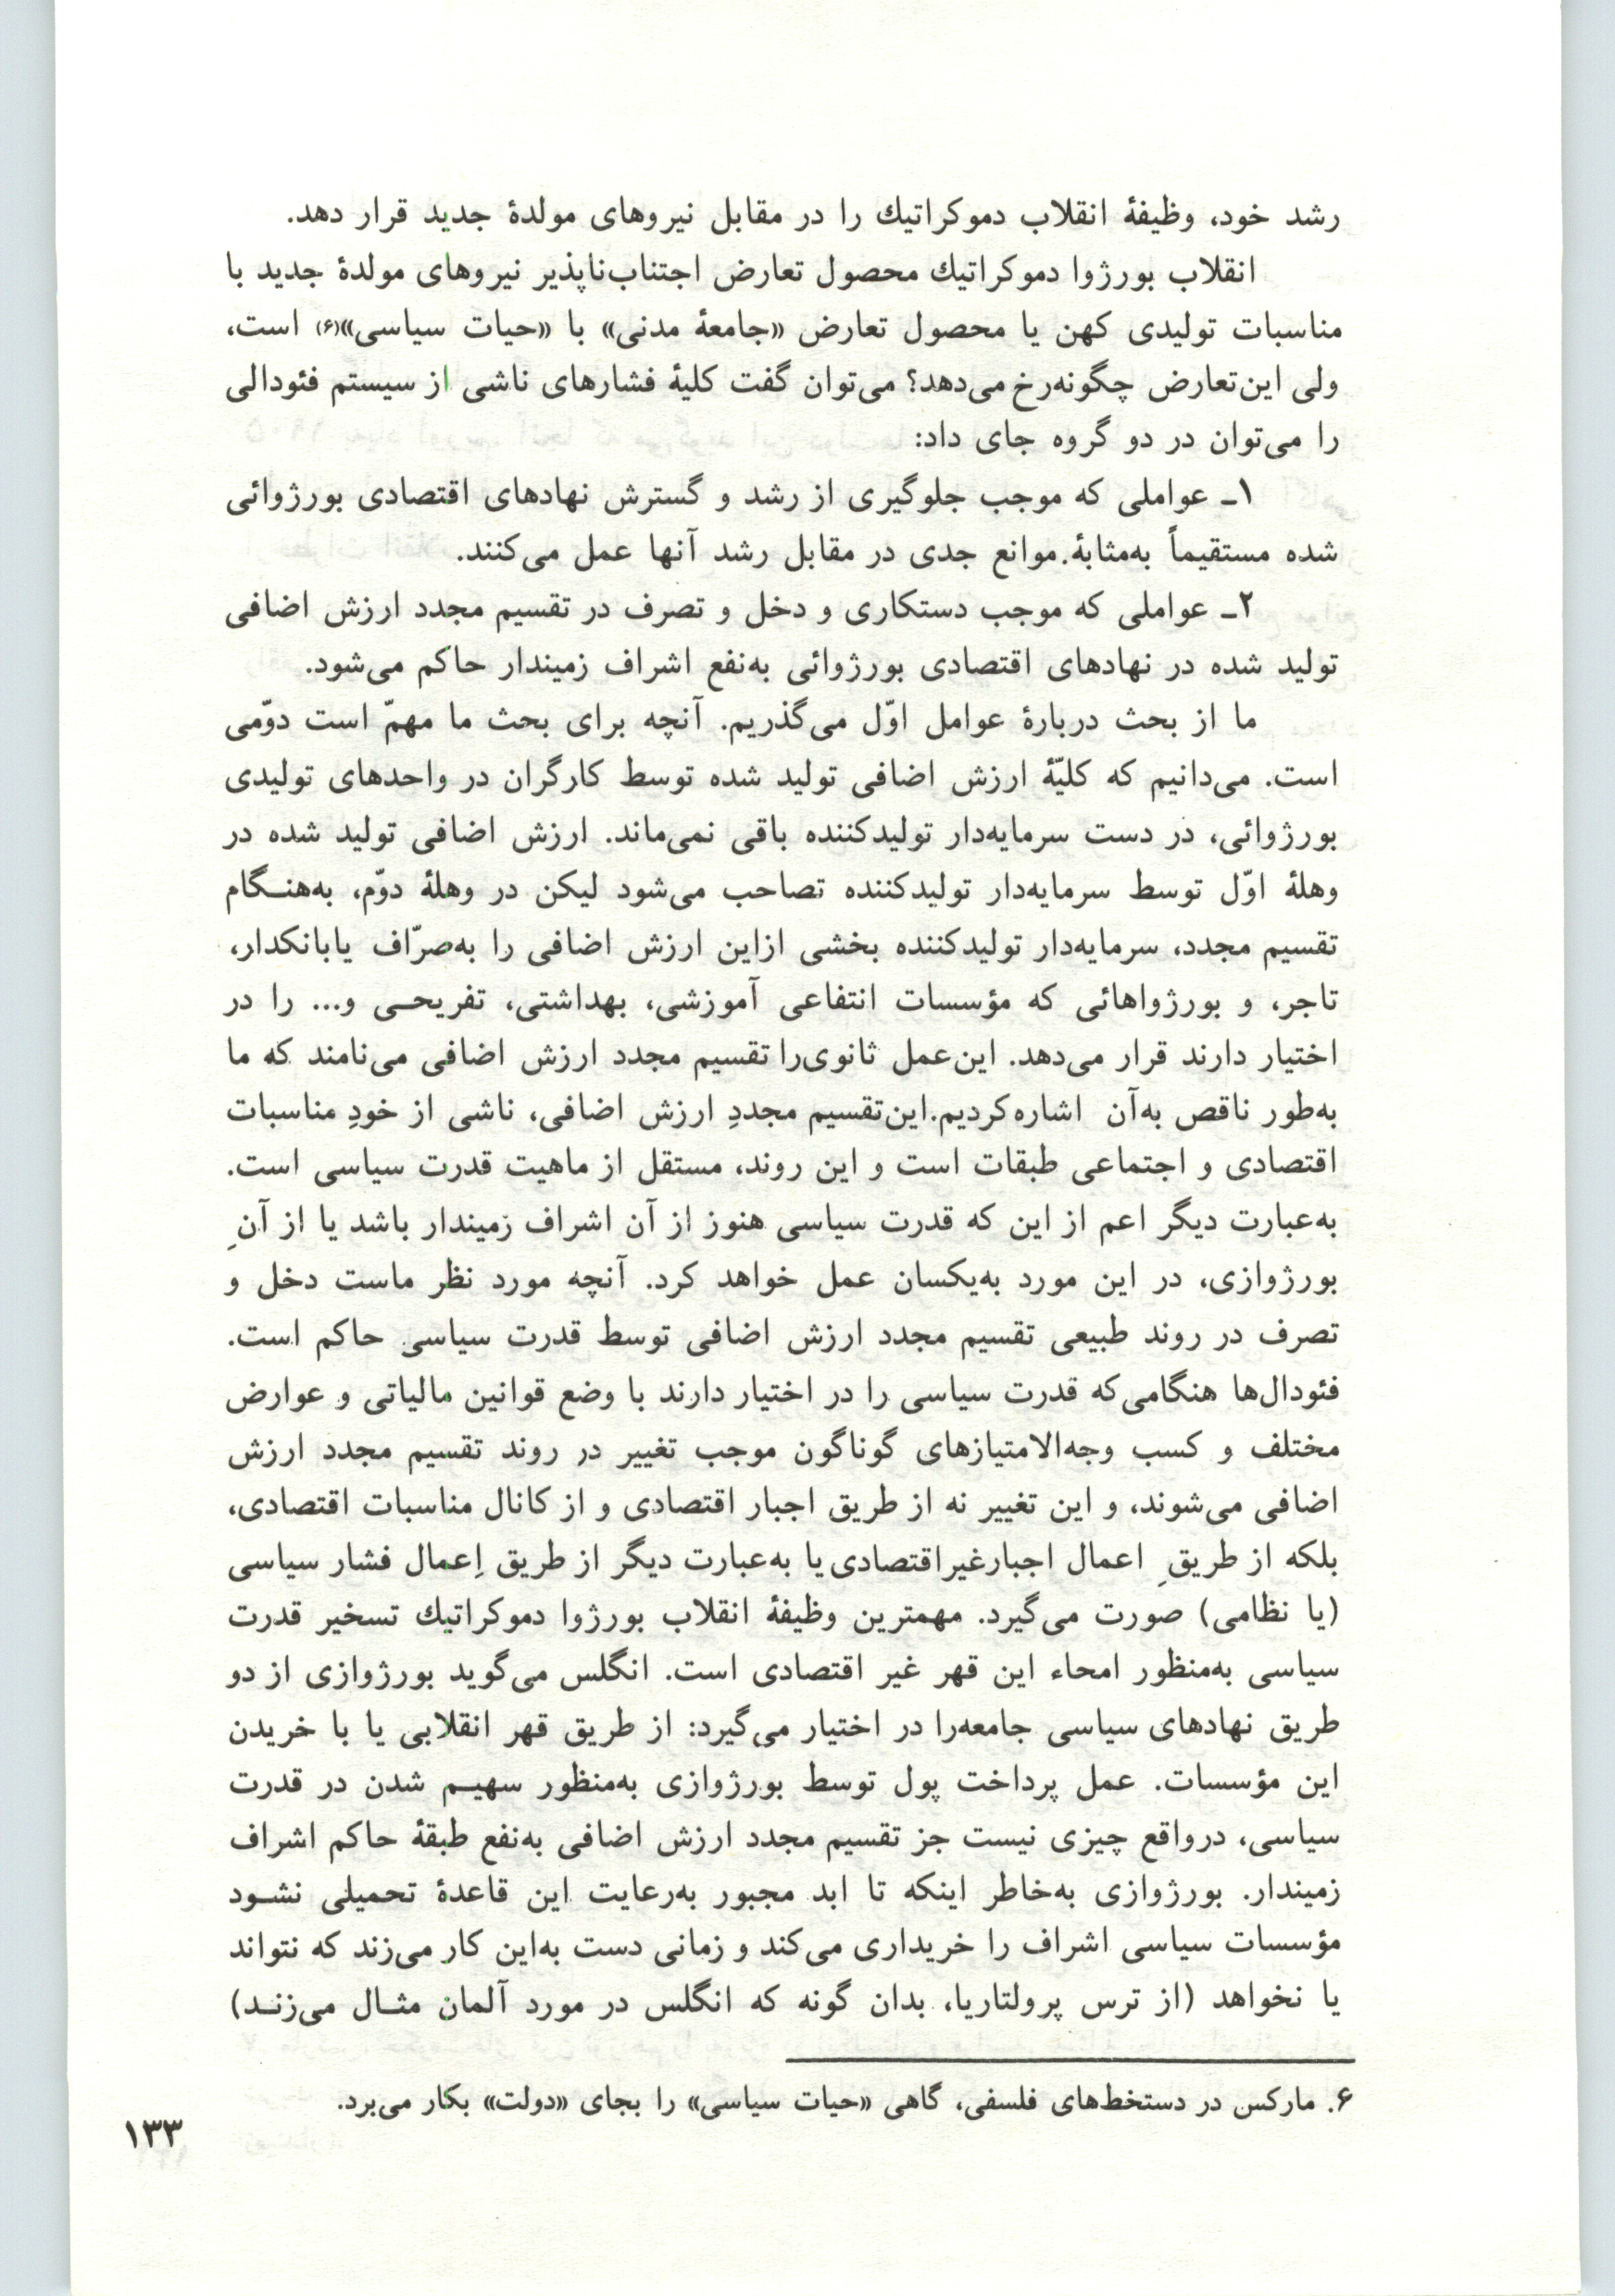 رشد خود، وظیفهٔ انقلاب دموکراتیك را در مقابل نیروهای مولدهٔ جدید قرار دهد.
انقلاب بورژوا دموکراتیك محصول تعارض اجتناب‌ناپذیر نیروهای مولدهٔ جدید با
مناسبات تولیدی کهن یا محصول تعارض «جامعهٔ مدنی» با «حیات سیاسی»(۶) است،
ولی این‌تعارض چگونه‌رخ می‌دهد؟ می‌توان گفت کلیهٔ فشارهای ناشی از سیستم فئودالی
را می‌توان در دو گروه جای داد:
۱ـ عواملی که موجب جلوگیری از رشد و گسترش نهادهای اقتصادی بورژوائی
شده مستقیماً به‌مثابهٔ موانع جدی در مقابل رشد آنها عمل می‌کنند.
۲ـ عواملی که موجب دستکاری و دخل و تصرف در تقسیم مجدد ارزش اضافی
تولید شده در نهادهای اقتصادی بورژوائی به‌نفع اشراف زمیندار حاکم می‌شود.
ما از بحث دربارهٔ عوامل اوّل می‌گذریم. آنچه برای بحث ما مهمّ است دوّمی
است. می‌دانیم که کلیّهٔ ارزش اضافی تولید شده توسط کارگران در واحدهای تولیدی
بورژوائی، در دست سرمایه‌دار تولیدکننده باقی نمی‌ماند. ارزش اضافی تولید شده در
وهلهٔ اوّل توسط سرمایه‌دار تولیدکننده تصاحب می‌شود لیکن در وهلهٔ دوّم، به‌هنـگام
تقسیم مجدد، سرمایه‌دار تولیدکننده بخشی ازاین ارزش اضافی را به‌صرّاف یابانکدار،
تاجر، و بورژواهائی که مؤسسات انتفاعی آموزشی، بهداشتی، تفریحـی و... را در
اختیار دارند قرار می‌دهد. این‌عمل ثانوی‌را تقسیم مجدد ارزش اضافی می‌نامند که ما
به‌طور ناقص به‌آن اشاره‌کردیم.این‌تقسیم مجددِ ارزش اضافی، ناشی از خودِ مناسبات
اقتصادی و اجتماعی طبقات است و این روند، مستقل از ماهیت قدرت سیاسی است.
به‌عبارت دیگر اعم از این که قدرت سیاسی هنوز از آن اشراف زمیندار باشد یا از آنِ
بورژوازی، در این مورد به‌یکسان عمل خواهد کرد. آنچه مورد نظر ماست دخل و
تصرف در روند طبیعی تقسیم مجدد ارزش اضافی توسط قدرت سیاسی حاکم است.
فئودال‌ها هنگامی‌که قدرت سیاسی را در اختیار دارند با وضع قوانین مالیاتی و عوارض
مختلف و کسب وجه‌الامتیازهای گوناگون موجب تغییر در روند تقسیم مجدد ارزش
اضافی می‌شوند، و این تغییر نه از طریق اجبار اقتصادی و از کانال مناسبات اقتصادی،
بلکه از طریقِ اعمال اجبارغیراقتصادی‌یا به‌عبارت دیگر از طریق اِعمال فشار سیاسی
(یا نظامی) صورت می‌گیرد. مهمترین وظیفهٔ انقلاب بورژوا دموکراتیك تسخیر قدرت
سیاسی به‌منظور امحاء این قهر غیر اقتصادی است. انگلس می‌گوید بورژوازی از دو
طریق نهادهای سیاسی جامعه‌را در اختیار می‌گیرد: از طریق قهر انقلابی یا با خریدن
این مؤسسات. عمل پرداخت پول توسط بورژوازی به‌منظور سهیـم شدن در قدرت
سیاسی، درواقع چیزی نیست جز تقسیم مجدد ارزش اضافی به‌نفع طبقهٔ حاکم اشراف
زمیندار. بورژوازی به‌خاطر اینکه تا ابد مجبور به‌رعایت این قاعدهٔ تحمیلی نشـود
مؤسسات سیاسی اشراف را خریداری می‌کند و زمانی دست به‌این کار می‌زند که نتواند
یا نخواهد (از ترس پرولتاریا، بدان گونه که انگلس در مورد آلمان مثـال می‌زنـد)
۶. مارکس در دستخط‌های فلسفی، گاهی «حیات سیاسی» را بجای «دولت» بکار می‌برد.
۱۳۳